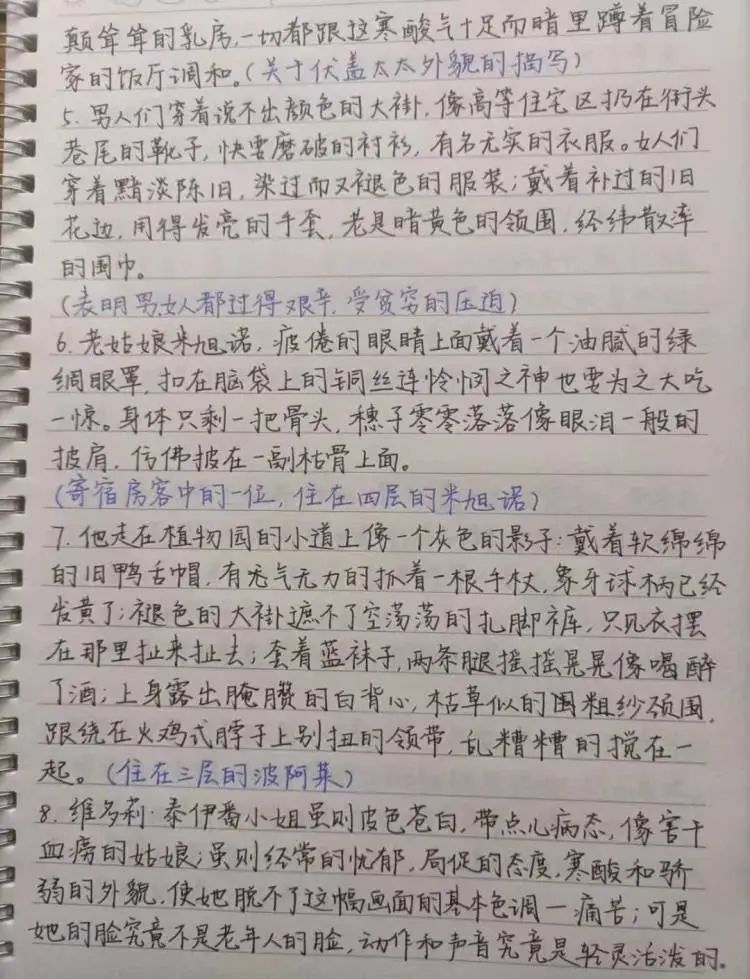 颠耸耸的乳房,一切都跟这寒酸气十足而暗里蹲着冒险
家的饭厅调和。(关于伏盖太太外貌的描写)
5. 男人们穿着说不出颜色的大褂,像高等住宅区扔在街头
巷尾的靴子,快要磨破的衬衫,有名无实的衣服。女人们
穿着黯淡陈旧,染过而又褪色的服装;戴着补过的旧
花边,用得发亮的手套,老是暗黄色的领围,经纬散率
的围巾。
(表明男女人都过得艰辛,受贫穷的压迫)
6. 老姑娘米旭诺,疲倦的眼睛上面戴着一个油腻的绿
绸眼罩,扣在脑袋上的铜丝连怜悯之神也要为之大吃
一惊。身体只剩一把骨头,穗子零零落落像眼泪一般的
披肩,仿佛披在一副枯骨上面。
(寄宿房客中的一位,住在四层的米旭诺)
7. 他走在植物园的小道上像一个灰色的影子:戴着软绵绵
的旧鸭舌帽,有无气无力的抓着一根手杖,象牙球柄已经
发黄了;褪色的大褂遮不了空荡荡的扎脚裤,只见衣摆
在那里扯来扯去;套着蓝袜子,两条腿摇摇晃晃像喝醉
了酒;上身露出腌臜的白背心,枯草似的围粗纱颈围,
跟绕在火鸡式脖子上别扭的领带,乱糟糟的搅在一
起。(住在三层的波阿莱)
8. 维多莉·泰伊番小姐虽则皮色苍白,带点心病态,像害干
血痨的姑娘;虽则经常的忧郁,局促的态度,寒酸和骄
弱的外貌,使她脱不了这幅画面的基本色调一痛苦;可是
她的脸究竟不是老年人的脸,动作和声音究竟是轻灵活泼的。